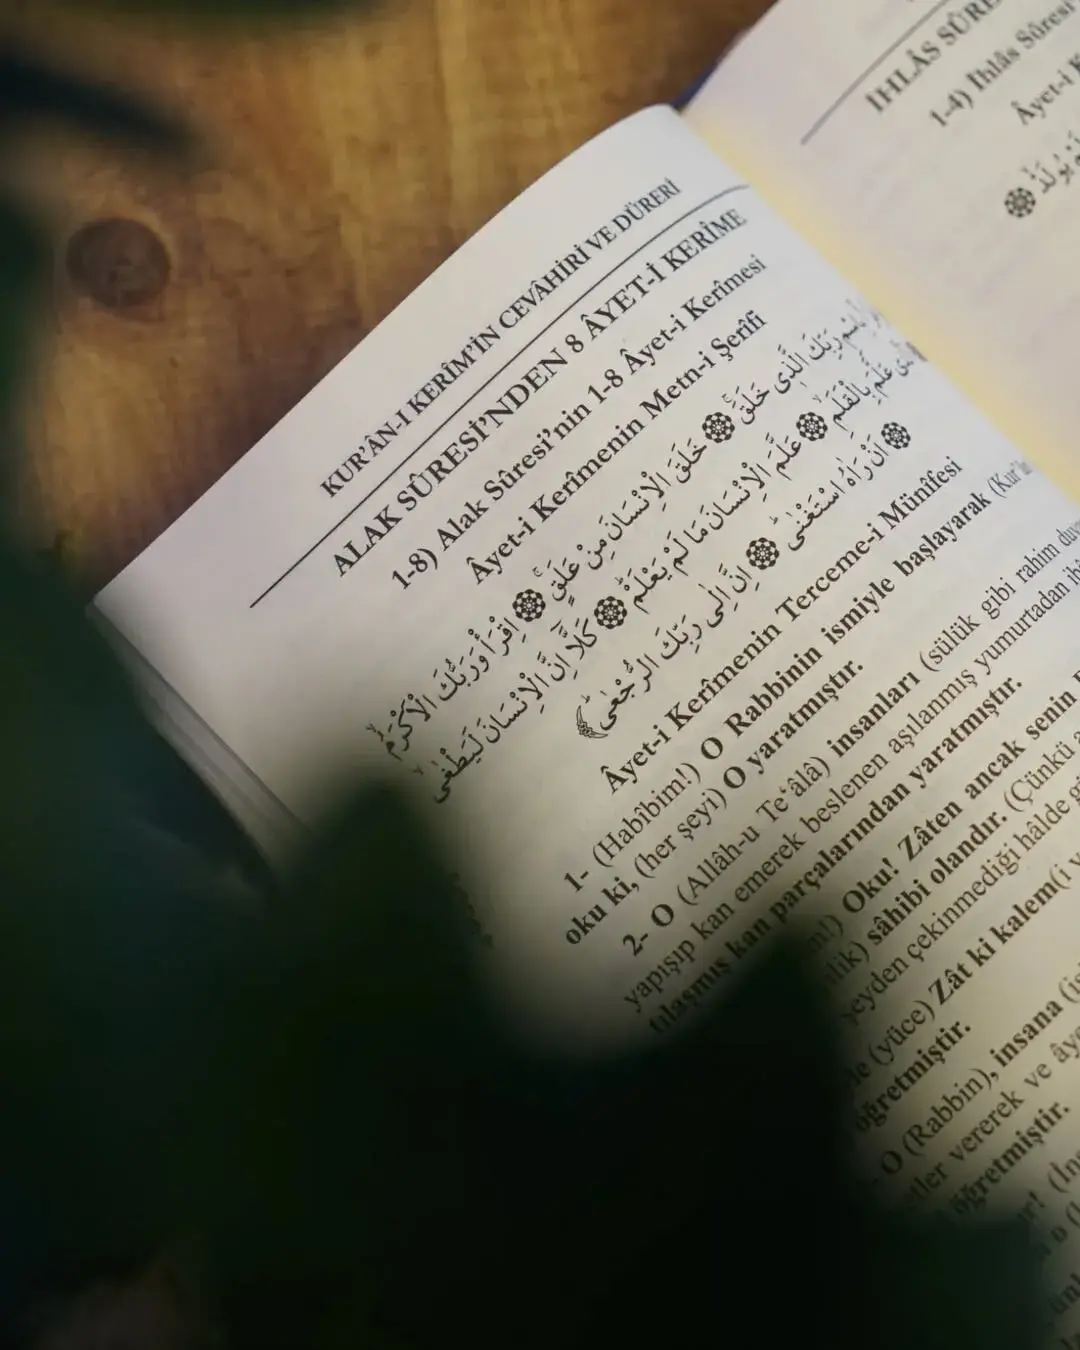 KUR’ÂN-I KERÎM’İN CEVÂHİRİ VE DÜRERİ
ALAK SÛRESİ’NDEN 8 ÂYET-İ KERÎME
1-8) Alak Sûresi’nin 1-8 Âyet-i Kerîmesi
Âyet-i Kerîmenin Metn-i Şerîfi
بِاسْمِ رَبِّكَ الَّذٖى خَلَقَۚ ۞ خَلَقَ الْاِنْسَانَ مِنْ عَلَقٍۚ ۞ اِقْرَأْ وَرَبُّكَ الْاَكْرَمُۙ
عَلَّمَ بِالْقَلَمِۙ ۞ عَلَّمَ الْاِنْسَانَ مَا لَمْ يَعْلَمْؕ ۞ كَلَّٓا اِنَّ الْاِنْسَانَ لَيَطْغٰىۙ
۞ اَنْ رَاٰهُ اسْتَغْنٰىؕ ۞ اِنَّ اِلٰى رَبِّكَ الرُّجْعٰىؕ ﴾
Âyet-i Kerîmenin Terceme-i Münîfesi
1- (Habîbim!) O Rabbinin ismiyle başlayarak (Kur’ân
oku ki, (her şeyi) O yaratmıştır.
2- O (Allâh-u Te‘âlâ) insanları (sülük gibi rahim
yapışıp kan emerek beslenen aşılanmış yumurtadan
kan parçalarından yaratmıştır.
Oku! Zâten ancak senin
sâhibi olandır. (Çünkü
şeyden çekinmediği hâlde
(yüce) Zât ki kalem(i
öğretmiştir.
O (Rabbin), insana
vererek ve
öğretmiştir.
İHLÂS
1-4) İhlâs Sûresi
Âyet-i
يُولَدْۙ ۞